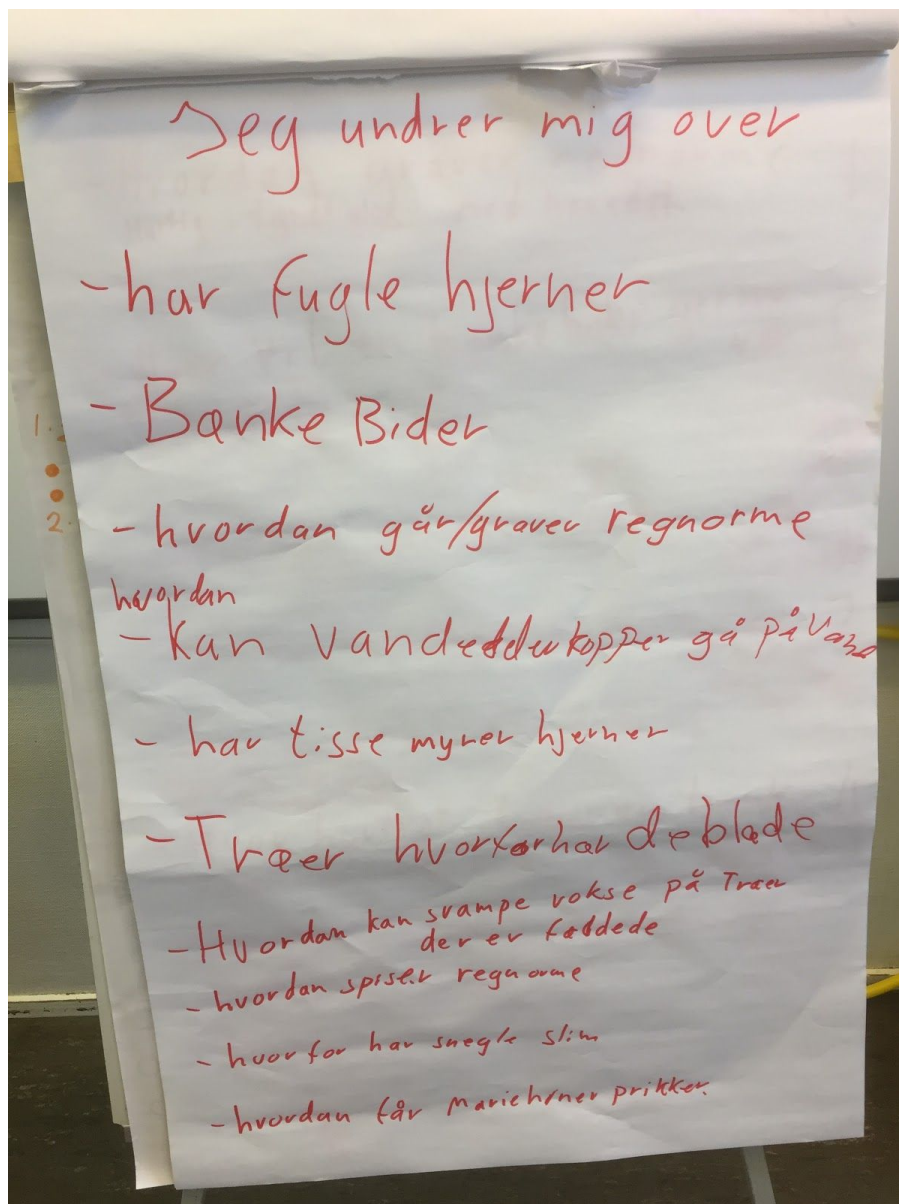 Jeg undrer mig over
- har fugle hjerner
- Bænke Bider
- hvordan går/graver regnorme
hvordan
- Kan Vandedderkopper gå på Vand
- har tisse myrer hjerner
- Træer hvorfor har de blade
- Hvordan kan svampe vokse på Træer
der er fældede
- hvordan spiser regnorme
- hvorfor har snegle slim
- hvordan får Mariehøner prikker.
1.
2.